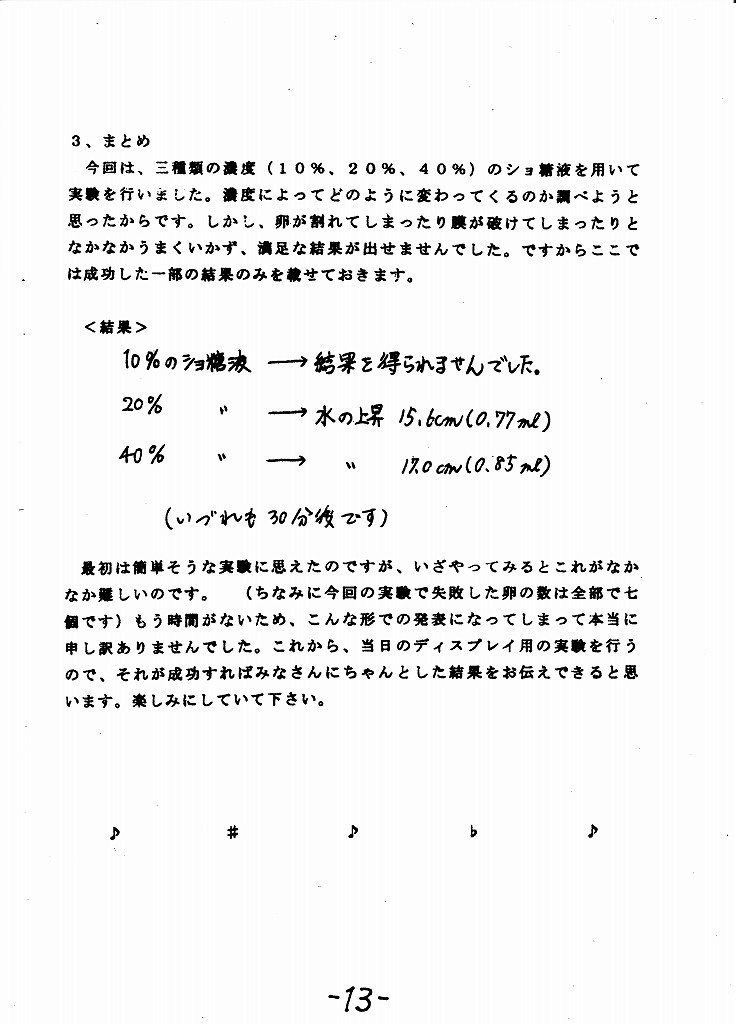 3、まとめ
今回は、三種類の濃度（10%、20%、40%）のショ糖液を用いて
実験を行いました。濃度によってどのように変わってくるのか調べようと
思ったからです。しかし、卵が割れてしまったり膜が破けてしまったりと
なかなかうまくいかず、満足な結果が出せませんでした。ですからここで
は成功した一部の結果のみを載せておきます。
<結果>
10%のショ糖液 → 結果を得られませんでした。
20% 〃 → 水の上昇 15.6cm(0.77ml)
40% 〃 → 〃 17.0cm(0.85ml)
(いづれも30分後です)
最初は簡単そうな実験に思えたのですが、いざやってみるとこれがなか
なか難しいのです。 （ちなみに今回の実験で失敗した卵の数は全部で七
個です）もう時間がないため、こんな形での発表になってしまって本当に
申し訳ありませんでした。これから、当日のディスプレイ用の実験を行う
ので、それが成功すればみなさんにちゃんとした結果をお伝えできると思
います。楽しみにしていて下さい。
♪ # ♪ ♭ ♪
-13-